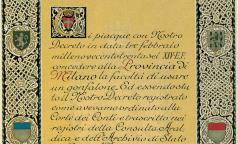 i piacque con Nostro
Decreto in data tre febbraio
millenovecentotrenta sei XIV E.F.
concedere alla Provincia di
Milano la facoltà di usare
un gonfalone. Ed essendosta
to il Nostro Decreto registrato
come avevamo ordinato alla
Corte dei Conti e trascritto nei
registri della Consulta Aral
dica e dell'Archivio di Stato